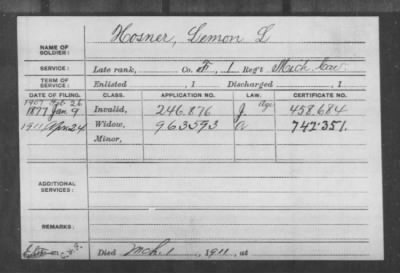 Hosner, Lemon L
NAME OF SOLDIER:
SERVICE: Late rank, Co. F, 1 Reg't Mich. Cav.
TERM OF SERVICE: Enlisted , 1 Discharged , 1
DATE OF FILING. CLASS. APPLICATION NO. LAW. CERTIFICATE NO.
1907 Feb. 26 Age
1877 Jan 9 Invalid, 246.876 J. 458.684
1911 Apr 24 Widow, 963593 742.351.
Minor,
ADDITIONAL SERVICES:
REMARKS:
Died Mch. 1, 1911, at